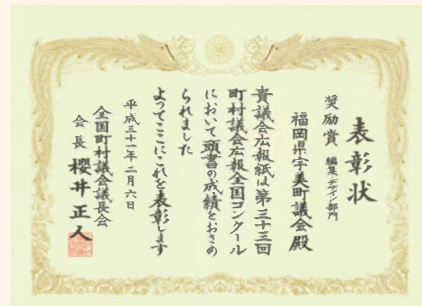 表彰状
奨励賞 編集・デザイン部門
福岡県宇美町議会殿
貴議会広報紙は第三十三回
町村議会広報全国コンクール
において頭書の成績をおさめ
られました
よってここにこれを表彰します
平成三十一年二月六日
全国町村議会議長会
会長 櫻井正人